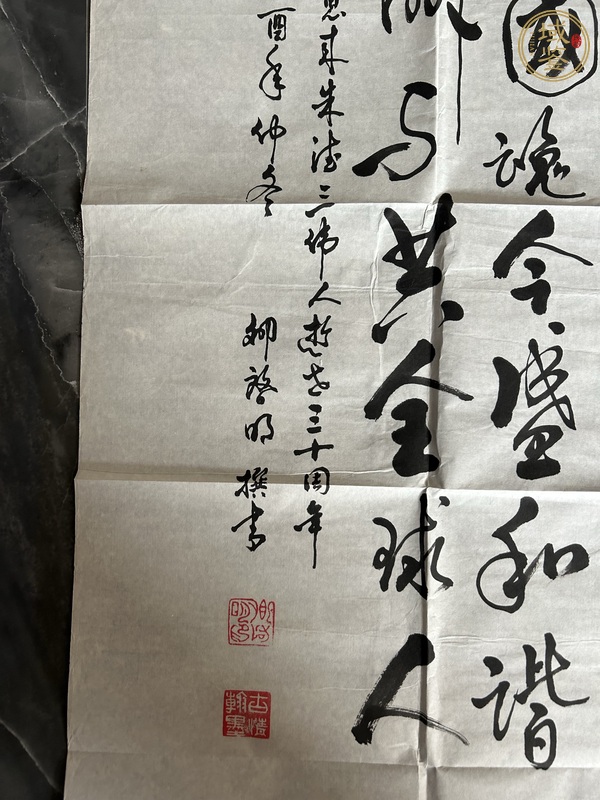 魂今盛和谐
与共全球人
恩来朱德三伟人逝世三十周年
酉年仲冬 柳啓明撰书
翰墨